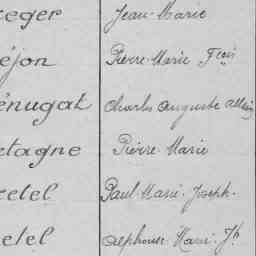 eger Jean-Marie
éjon Pierre-Marie Fçois
énugat Charles Auguste Albin
etagne Pierre-Marie
etel Paul-Marie-Joseph.
etel Alphonse-Marie-Jh